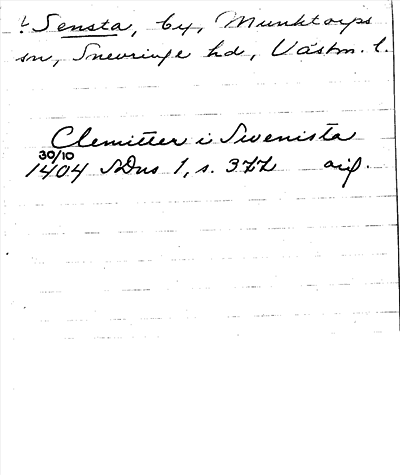 Sensta, by, Munktorps
sn, Snevringe hd, Västm. l.
Clemitter i Swenista
30/10
1404 SDns 1, s. 377 oif.